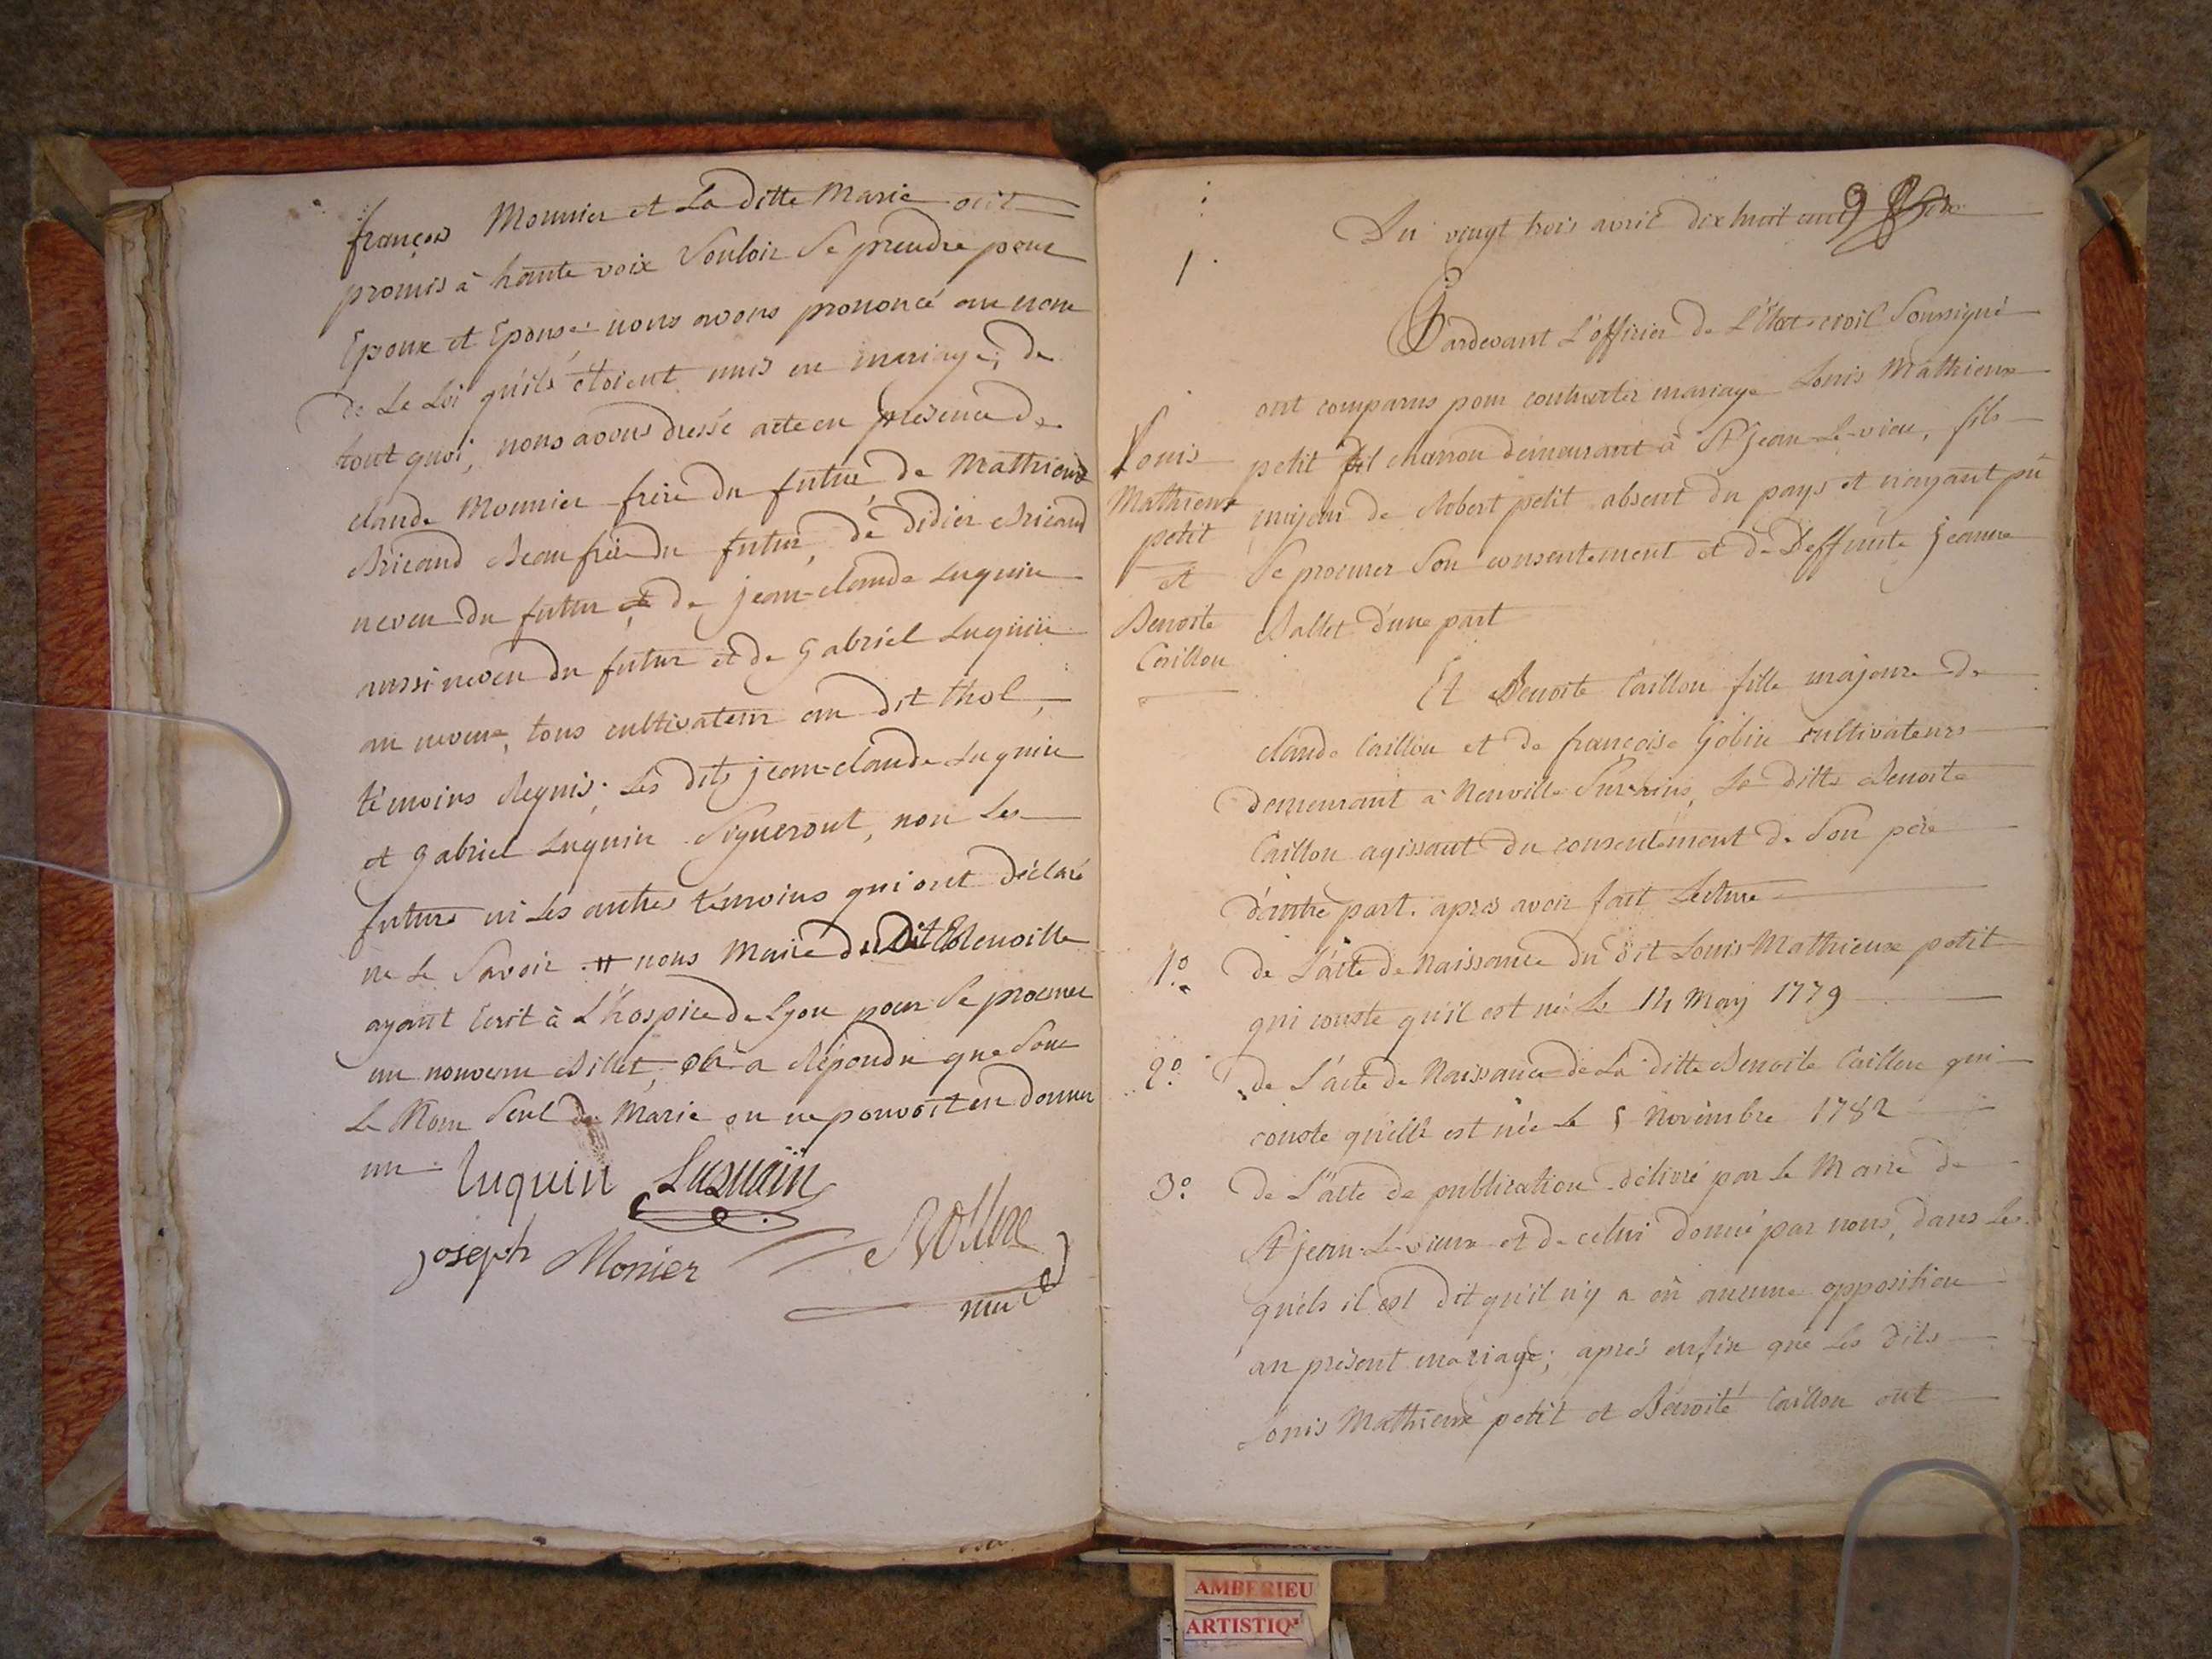 françois Mounier et La ditte Marie ont
promis à haute voix Vouloir Se prendre pour
Epoux et Epouse nous avons prononcé au nom
de La Loi qu'ils étoient unis en mariage; de
tout quoi, nous avons dressé acte en présence de
claude Mounier frère du futur, de Mathieux
Bricand Beaufrère du futur, de didier Bricand
neveu du futur, de jean-claude Luquin
aussi neveu du futur et de gabriel Luquin
au neveux, tous cultivateurs au dit thol,
témoins Requis. Les dits jean-claude Luquin
et gabriel Luquin Signeront, non Les
futurs ni Les autres témoins qui ont déclaré
ne Le Savoir # nous Maire du Dit Neuville
ayant Ecrit à L'hospice de Lyon pour Se procurer
un nouveau Billet, on a Répondu que Sous
Le Nom Seul de Marie on ne pouvoit en donner
un
Luquin Luquin
joseph Monier
1.
Du vingt trois avril dix huit cent
Pardevant L'officier de L'Etat-civil Soussigné
ont comparus pour contracter mariage Louis Mathieux
petit demeurant à St jean-Le-vieu, fils
majeur de Robert petit absent du pays et n'ayant pû
Se procurer Son consentement et de Deffunte jeanne
Ballet d'une part
Louis
Mathieux
petit
et
Benoite
Caillon
Et Benoite Caillon fille majeure de
claude Caillon et de françoise Gobin cultivateurs
demeurant à Neuville Sur-ains, La ditte Benoite
Caillon agissant du consentement de Son père
d'autre part. apres avoir fait Lecture
1.º de L'acte de Naissance du dit Louis-Mathieux petit
qui conste qu'il est né Le 14 May 1779
2.º de L'acte de Naissance de La ditte Benoite Caillon qui
conste qu'elle est née Le 5 Novembre 1782
3.º de L'acte de publication délivré par Le Maire de
St jean-Le-vieux et de celui donné par nous, dans Les
quels il est dit qu'il n'y a eû aucune opposition
au présent mariage; après enfin que Les dits
Louis Mathieux petit et Benoite Caillon ont
AMBERIEU
ARTISTIQ